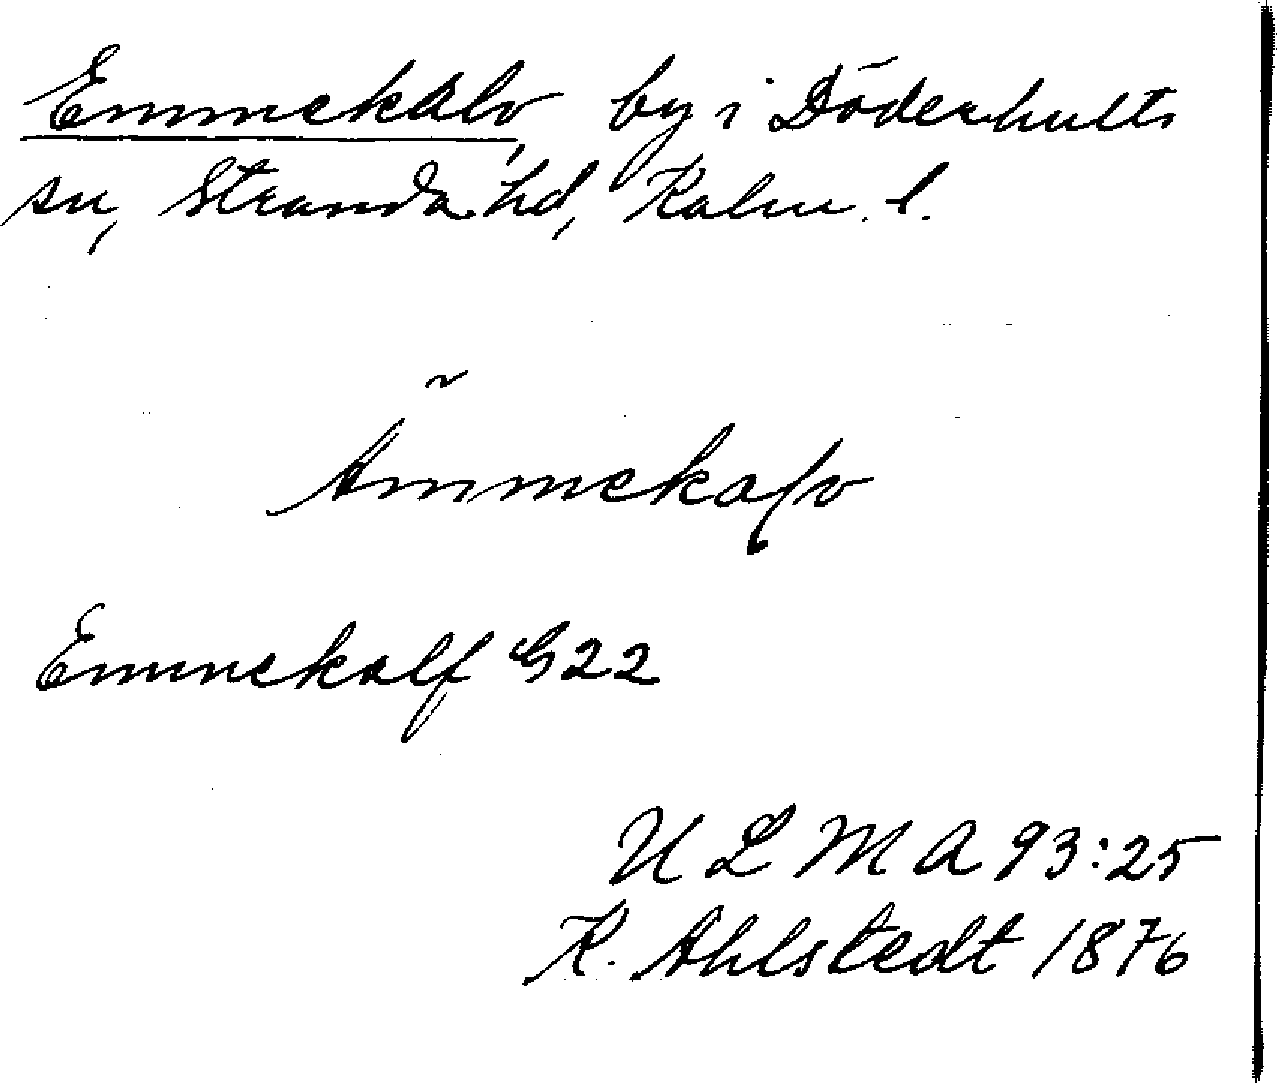 Emmekalv, by i Döderhults
sn, Stranda hd, Kalm. l.
Ämmekalv
Emmekalf G22
U L M A 93:25
K. Ahlstedt 1876